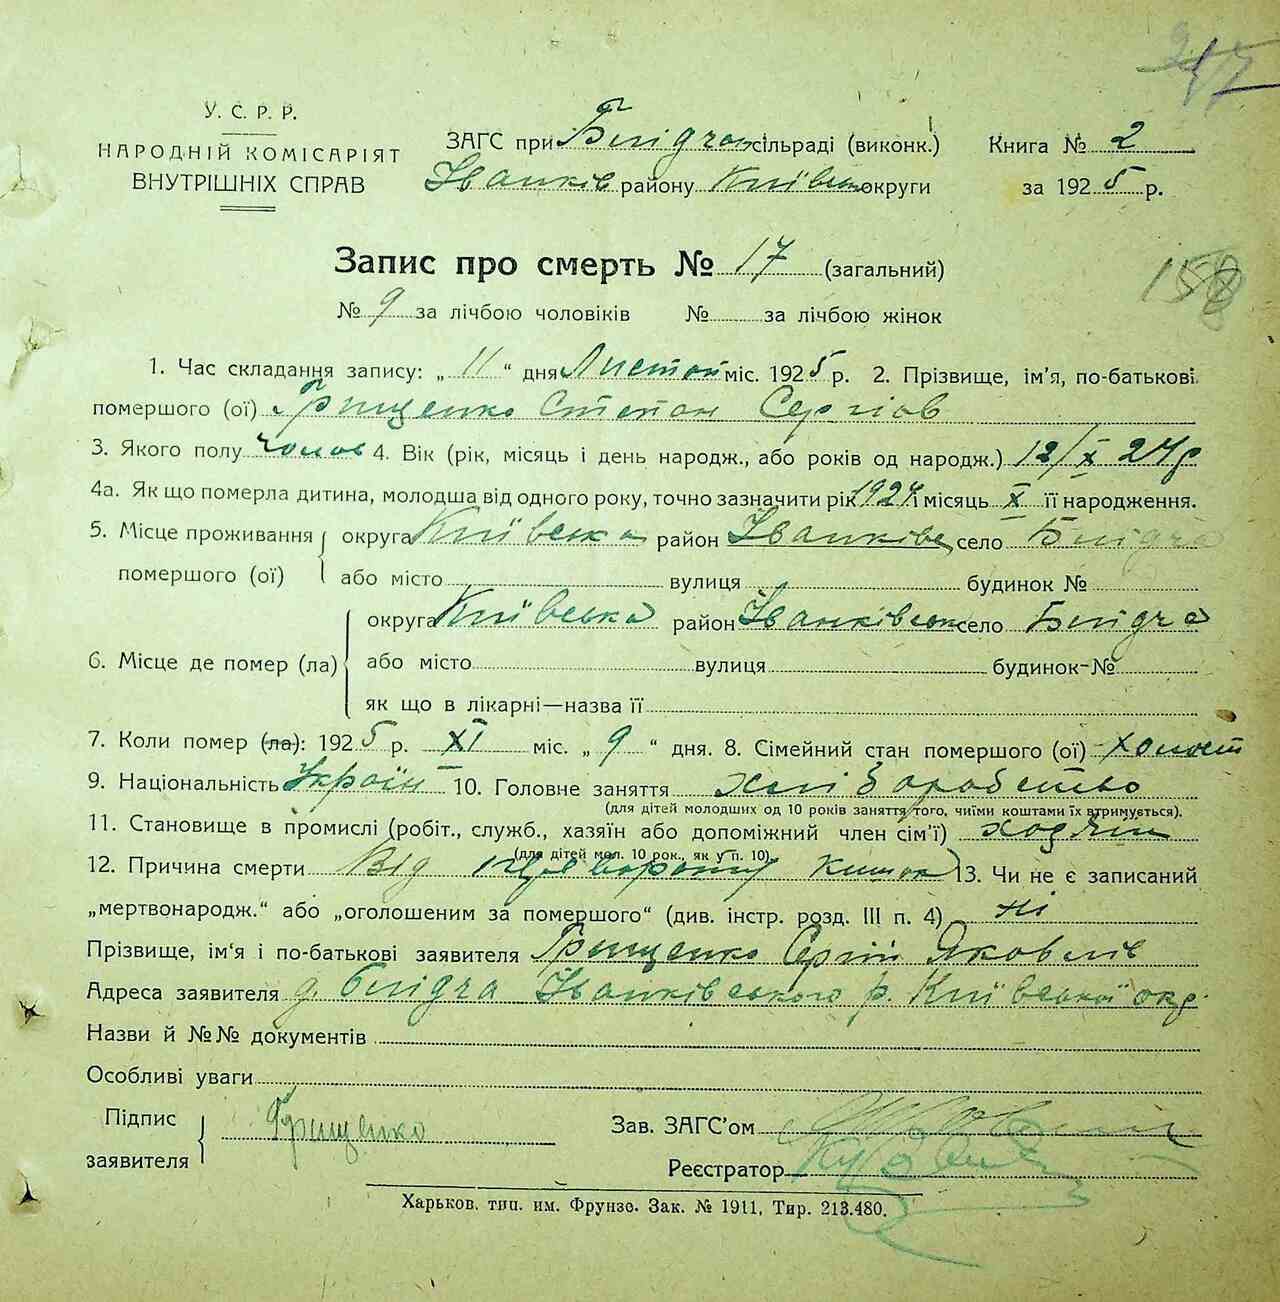 У. С. Р. Р.
НАРОДНІЙ КОМІСАРІЯТ
ВНУТРІШНІХ СПРАВ
ЗАГС при сільраді (виконк.)
Іванків району Київськ округи
Книга № 2
за 1925 р.
Запис про смерть № 17 (загальний)
№ 9 за лічбою чоловіків № за лічбою жінок
158
1. Час складання запису: „ 11 “ дня Листоп міс. 1925 р. 2. Прізвище, ім'я, по-батькові
помершого (ої) Грищенко Степан Сергіїв
3. Якого полу чолов 4. Вік (рік, місяць і день народж., або років од народж.) 12/X 24 р
4а. Як що померла дитина, молодша від одного року, точно зазначити рік 1924 і місяць X її народження.
5. Місце проживання помершого (ої) округа Київська район Іванківс село Блідча
або місто вулиця будинок №
6. Місце де помер (ла) округа Київська район Іванківськ село Блідча
або місто вулиця будинок-№
як що в лікарні—назва її
7. Коли помер (ла): 1925 р. XI міс. „ 9 “ дня. 8. Сімейний стан помершого (ої) холост
9. Національність Україн 10. Головне заняття хліборобство
(для дітей молодших од 10 років заняття того, чиїми коштами їх втримується).
11. Становище в промислі (робіт., служб., хазяїн або допоміжний член сім'ї)
(для дітей мол. 10 рок., як у п. 10).
12. Причина смерти Від кишок 13. Чи не є записаний
„мертвонародж.“ або „оголошеним за помершого“ (див. інстр. розд. III п. 4) ні
Прізвище, ім‘я і по-батькові заявителя Грищенко Сергій Яковлів
Адреса заявителя д. Блідча Іванківського р. Київської окр.
Назви й №№ документів
Особливі уваги
Підпис заявителя Грищенко
Зав. ЗАГС'ом
Реєстратор
Харьков. тип. им. Фрунзе. Зак. № 1911, Тир. 213.480.